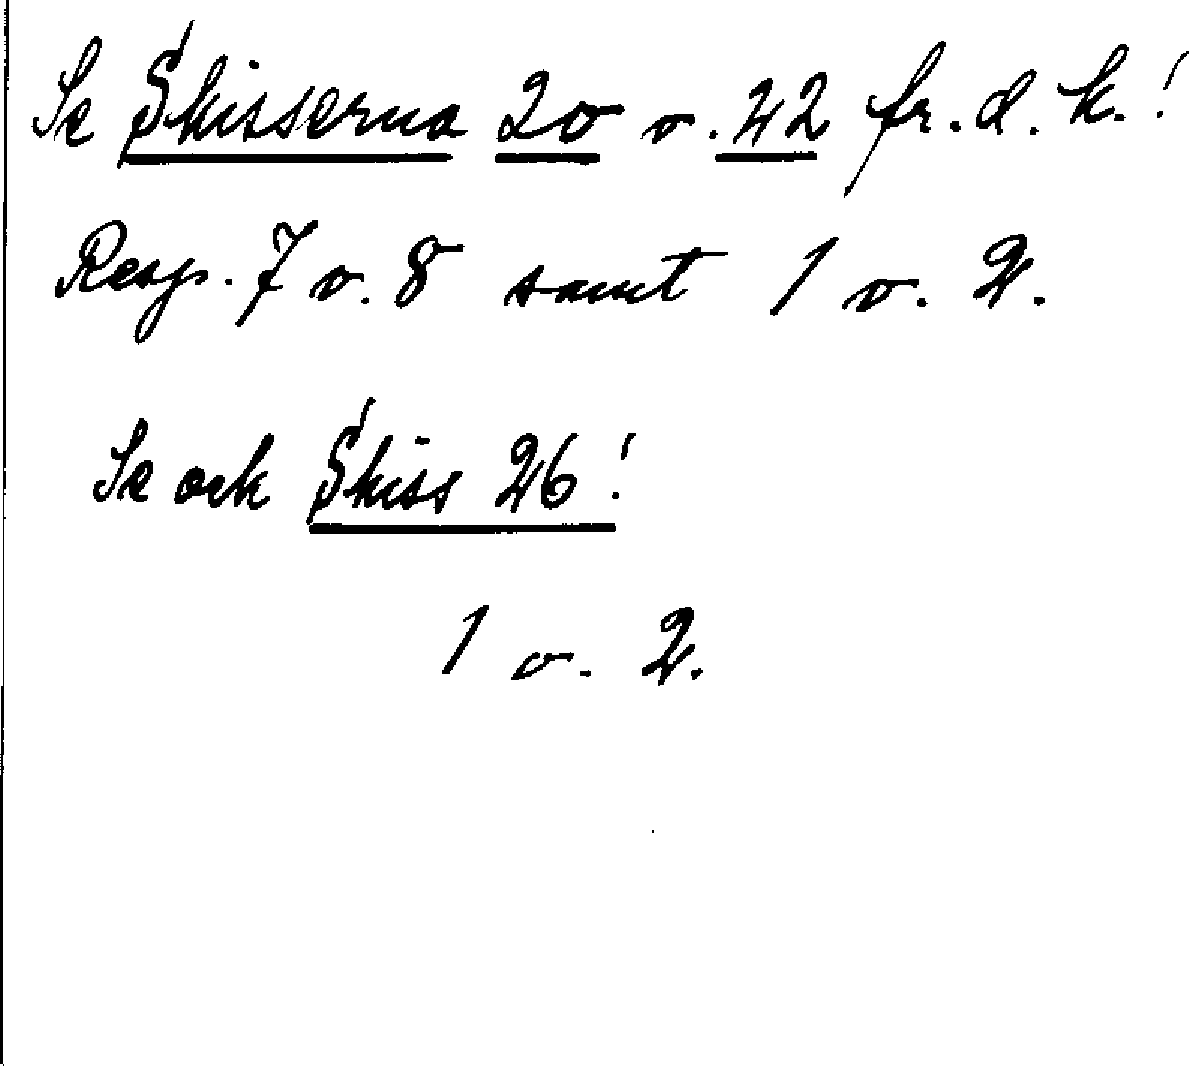 Se Skisserna 20 o. 22 fr. d. k.!
Resp. 7 o. 8 samt 1 o. 2.
Se ock Skiss 26!
1 o. 2.